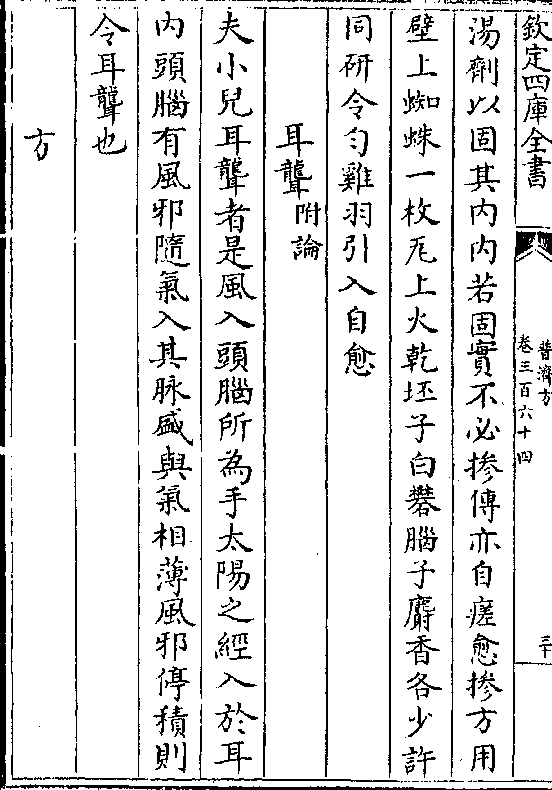 欽定四庫全書
普濟方
卷三百六十四
三十
湯劑以固其内内若固實不必摻傅亦自瘥愈摻方用
壁上蜘蛛一枚瓦上火乾坯子白礬腦子麝香各少許
同研令勻雞羽引入自愈
耳聾附論
夫小兒耳聾者是風入頭腦所為手太陽之經入於耳
内頭腦有風邪隨氣入其脉盛與氣相薄風邪停積則
令耳聾也
方